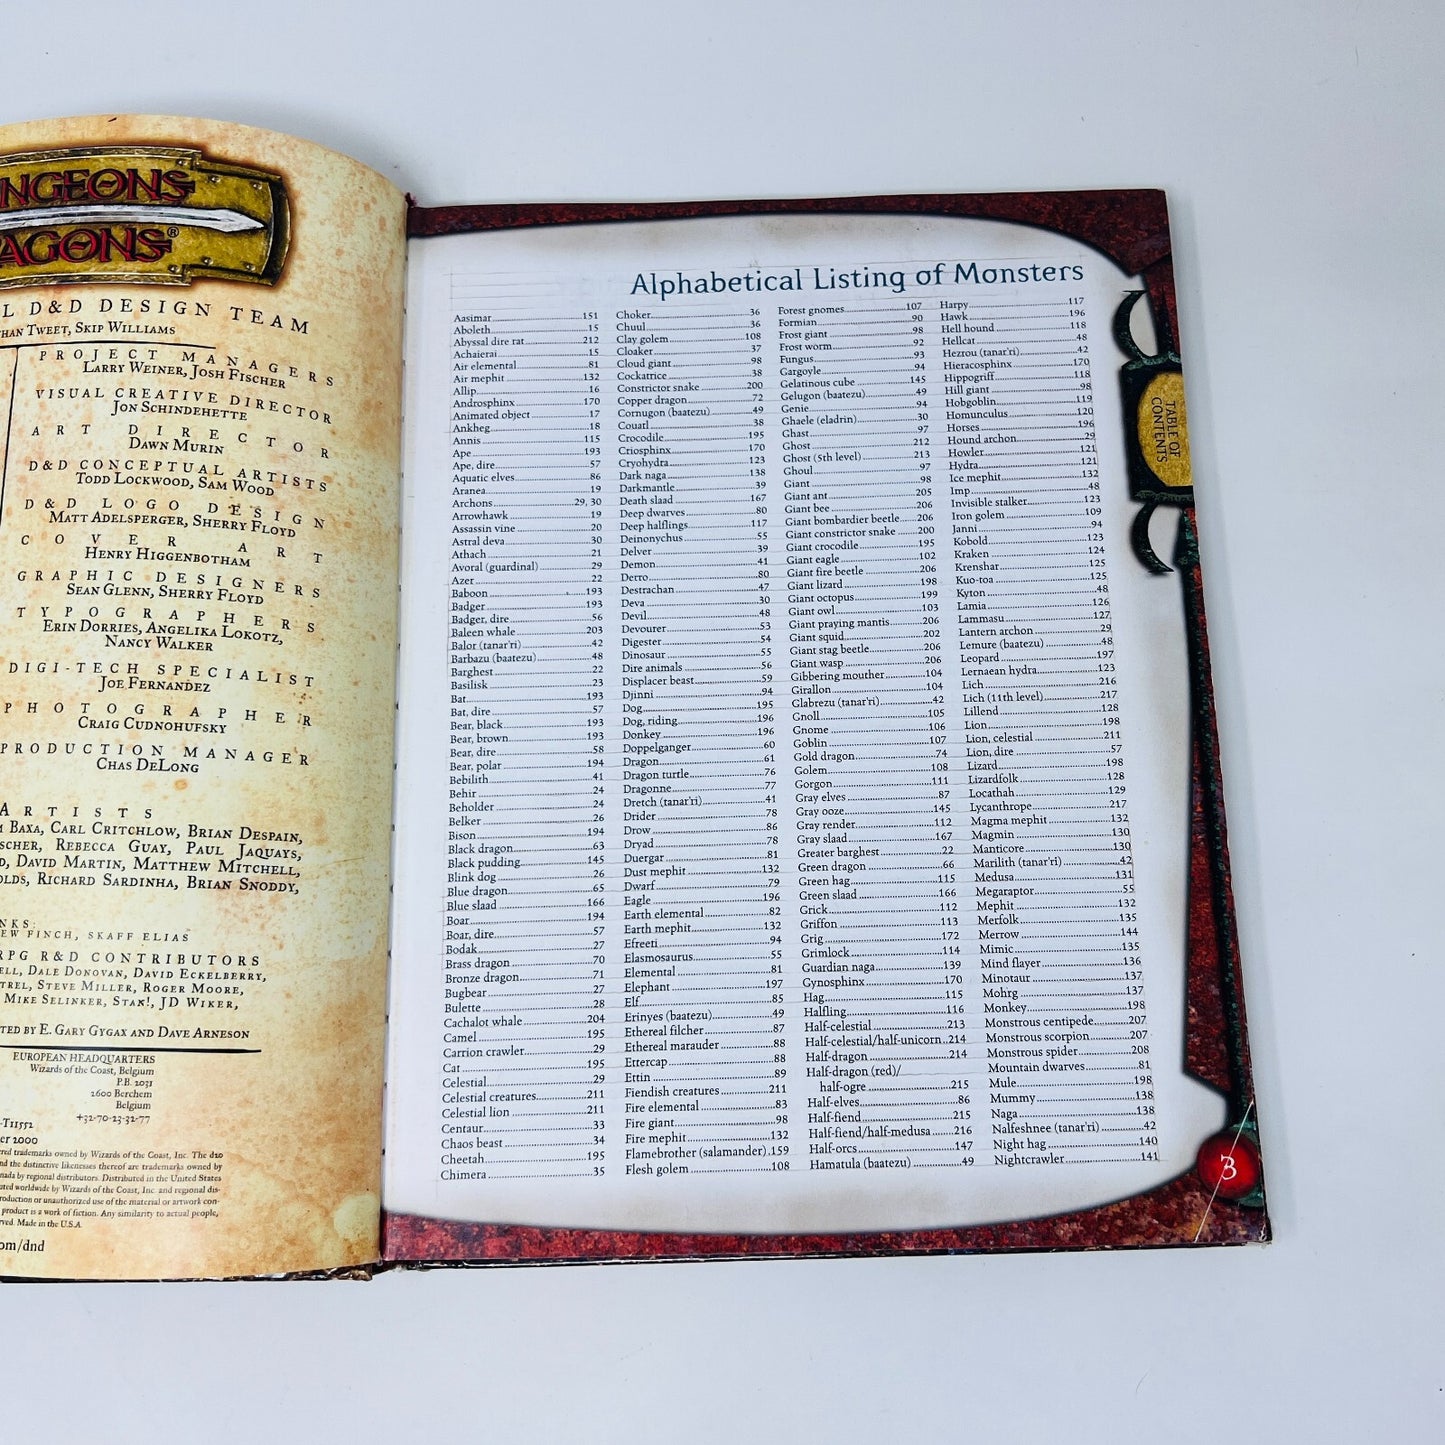 NGEONS
AGONS®
L D&D DESIGN TEAM
HAN TWEET, SKIP WILLIAMS
PROJECT MANAGERS
LARRY WEINER, JOSH FISCHER
VISUAL CREATIVE DIRECTOR
JON SCHINDEHETTE
ART DIRECTOR
DAWN MURIN
D&D CONCEPTUAL ARTISTS
TODD LOCKWOOD, SAM WOOD
D&D LOGO DESIGN
MATT ADELSPERGER, SHERRY FLOYD
COVER ART
HENRY HIGGENBOTHAM
GRAPHIC DESIGNERS
SEAN GLENN, SHERRY FLOYD
TYPOGRAPHERS
ERIN DORRIES, ANGELIKA LOKOTZ,
NANCY WALKER
DIGI-TECH SPECIALIST
JOE FERNANDEZ
PHOTOGRAPHER
CRAIG CUDNOHUFSKY
PRODUCTION MANAGER
CHAS DELONG
ARTISTS
BAXA, CARL CRITCHLOW, BRIAN DESPAIN,
SCHER, REBECCA GUAY, PAUL JAQUAYS,
D, DAVID MARTIN, MATTHEW MITCHELL,
OLDS, RICHARD SARDINHA, BRIAN SNODDY,
NKS:
EW FINCH, SKAFF ELIAS
RPG R&D CONTRIBUTORS
ELL, DALE DONOVAN, DAVID ECKELBERRY,
TREL, STEVE MILLER, ROGER MOORE,
MIKE SELINKER, STAN!, JD WIKER,
TED BY E. GARY GYGAX AND DAVE ARNESON
EUROPEAN HEADQUARTERS
Wizards of the Coast, Belgium
P.B. 2031
2600 Berchem
Belgium
+32-70-23-32-77
-T11552
er 2000
ered trademarks owned by Wizards of the Coast, Inc. The d20
nd the distinctive likenesses thereof are trademarks owned by
nada by regional distributors. Distributed in the United States
uted worldwide by Wizards of the Coast, Inc. and regional dis-
roduction or unauthorized use of the material or artwork con-
product is a work of fiction. Any similarity to actual people,
rved. Made in the U.S.A.
om/dnd
Alphabetical Listing of Monsters
Aasimar 151
Aboleth 15
Abyssal dire rat 212
Achaierai 15
Air elemental 81
Air mephit 132
Allip 16
Androsphinx 170
Animated object 17
Ankheg 18
Annis 115
Ape 193
Ape, dire 57
Aquatic elves 86
Aranea 19
Archons 29, 30
Arrowhawk 19
Assassin vine 20
Astral deva 30
Athach 21
Avoral (guardinal) 29
Azer 22
Baboon 193
Badger 193
Badger, dire 56
Baleen whale 203
Balor (tanar'ri) 42
Barbazu (baatezu) 48
Barghest 22
Basilisk 23
Bat 193
Bat, dire 57
Bear, black 193
Bear, brown 193
Bear, dire 58
Bear, polar 194
Bebilith 41
Behir 24
Beholder 24
Belker 26
Bison 194
Black dragon 63
Black pudding 145
Blink dog 26
Blue dragon 65
Blue slaad 166
Boar 194
Boar, dire 57
Bodak 27
Brass dragon 70
Bronze dragon 71
Bugbear 27
Bulette 28
Cachalot whale 204
Camel 195
Carrion crawler 29
Cat 195
Celestial 29
Celestial creatures 211
Celestial lion 211
Centaur 33
Chaos beast 34
Cheetah 195
Chimera 35
Choker 36
Chuul 36
Clay golem 108
Cloaker 37
Cloud giant 98
Cockatrice 38
Constrictor snake 200
Copper dragon 72
Cornugon (baatezu) 49
Couatl 38
Crocodile 195
Criosphinx 170
Cryohydra 123
Dark naga 138
Darkmantle 39
Death slaad 167
Deep dwarves 80
Deep halflings 117
Deinonychus 55
Delver 39
Demon 41
Derro 80
Destrachan 47
Deva 30
Devil 48
Devourer 53
Digester 54
Dinosaur 55
Dire animals 56
Displacer beast 59
Djinni 94
Dog 195
Dog, riding 196
Donkey 196
Doppelganger 60
Dragon 61
Dragon turtle 76
Dragonne 77
Dretch (tanar'ri) 41
Drider 78
Drow 86
Dryad 78
Duergar 81
Dust mephit 132
Dwarf 79
Eagle 196
Earth elemental 82
Earth mephit 132
Efreeti 94
Elasmosaurus 55
Elemental 81
Elephant 197
Elf 85
Erinyes (baatezu) 49
Ethereal filcher 87
Ethereal marauder 88
Ettercap 88
Ettin 89
Fiendish creatures 211
Fire elemental 83
Fire giant 98
Fire mephit 132
Flamebrother (salamander) 159
Flesh golem 108
Forest gnomes 107
Formian 90
Frost giant 98
Frost worm 92
Fungus 93
Gargoyle 94
Gelatinous cube 145
Gelugon (baatezu) 49
Genie 94
Ghaele (eladrin) 30
Ghast 97
Ghost 212
Ghost (5th level) 213
Ghoul 97
Giant 98
Giant ant 205
Giant bee 206
Giant bombardier beetle 206
Giant constrictor snake 200
Giant crocodile 195
Giant eagle 102
Giant fire beetle 206
Giant lizard 198
Giant octopus 199
Giant owl 103
Giant praying mantis 206
Giant squid 202
Giant stag beetle 206
Giant wasp 206
Gibbering mouther 104
Girallon 104
Glabrezu (tanar'ri) 42
Gnoll 105
Gnome 106
Goblin 107
Gold dragon 74
Golem 108
Gorgon 111
Gray elves 87
Gray ooze 145
Gray render 112
Gray slaad 167
Greater barghest 22
Green dragon 66
Green hag 115
Green slaad 166
Grick 112
Griffon 113
Grig 172
Grimlock 114
Guardian naga 139
Gynosphinx 170
Hag 115
Halfling 116
Half-celestial 213
Half-celestial/half-unicorn 214
Half-dragon 214
Half-dragon (red)/
half-ogre 215
Half-elves 86
Half-fiend 215
Half-fiend/half-medusa 216
Half-orcs 147
Hamatula (baatezu) 49
Harpy 117
Hawk 196
Hell hound 118
Hellcat 48
Hezrou (tanar'ri) 42
Hieracosphinx 170
Hippogriff 118
Hill giant 98
Hobgoblin 119
Homunculus 120
Horses 196
Hound archon 29
Howler 121
Hydra 121
Ice mephit 132
Imp 48
Invisible stalker 123
Iron golem 109
Janni 94
Kobold 123
Kraken 124
Krenshar 125
Kuo-toa 125
Kyton 48
Lamia 126
Lammasu 127
Lantern archon 29
Lemure (baatezu) 48
Leopard 197
Lernaean hydra 123
Lich 216
Lich (11th level) 217
Lillend 128
Lion 198
Lion, celestial 211
Lion, dire 57
Lizard 198
Lizardfolk 128
Locathah 129
Lycanthrope 217
Magma mephit 132
Magmin 130
Manticore 130
Marilith (tanar'ri) 42
Medusa 131
Megaraptor 55
Mephit 132
Merfolk 135
Merrow 144
Mimic 135
Mind flayer 136
Minotaur 137
Mohrg 137
Monkey 198
Monstrous centipede 207
Monstrous scorpion 207
Monstrous spider 208
Mountain dwarves 81
Mule 198
Mummy 138
Naga 138
Nalfeshnee (tanar'ri) 42
Night hag 140
Nightcrawler 141
TABLE OF
CONTENTS
3